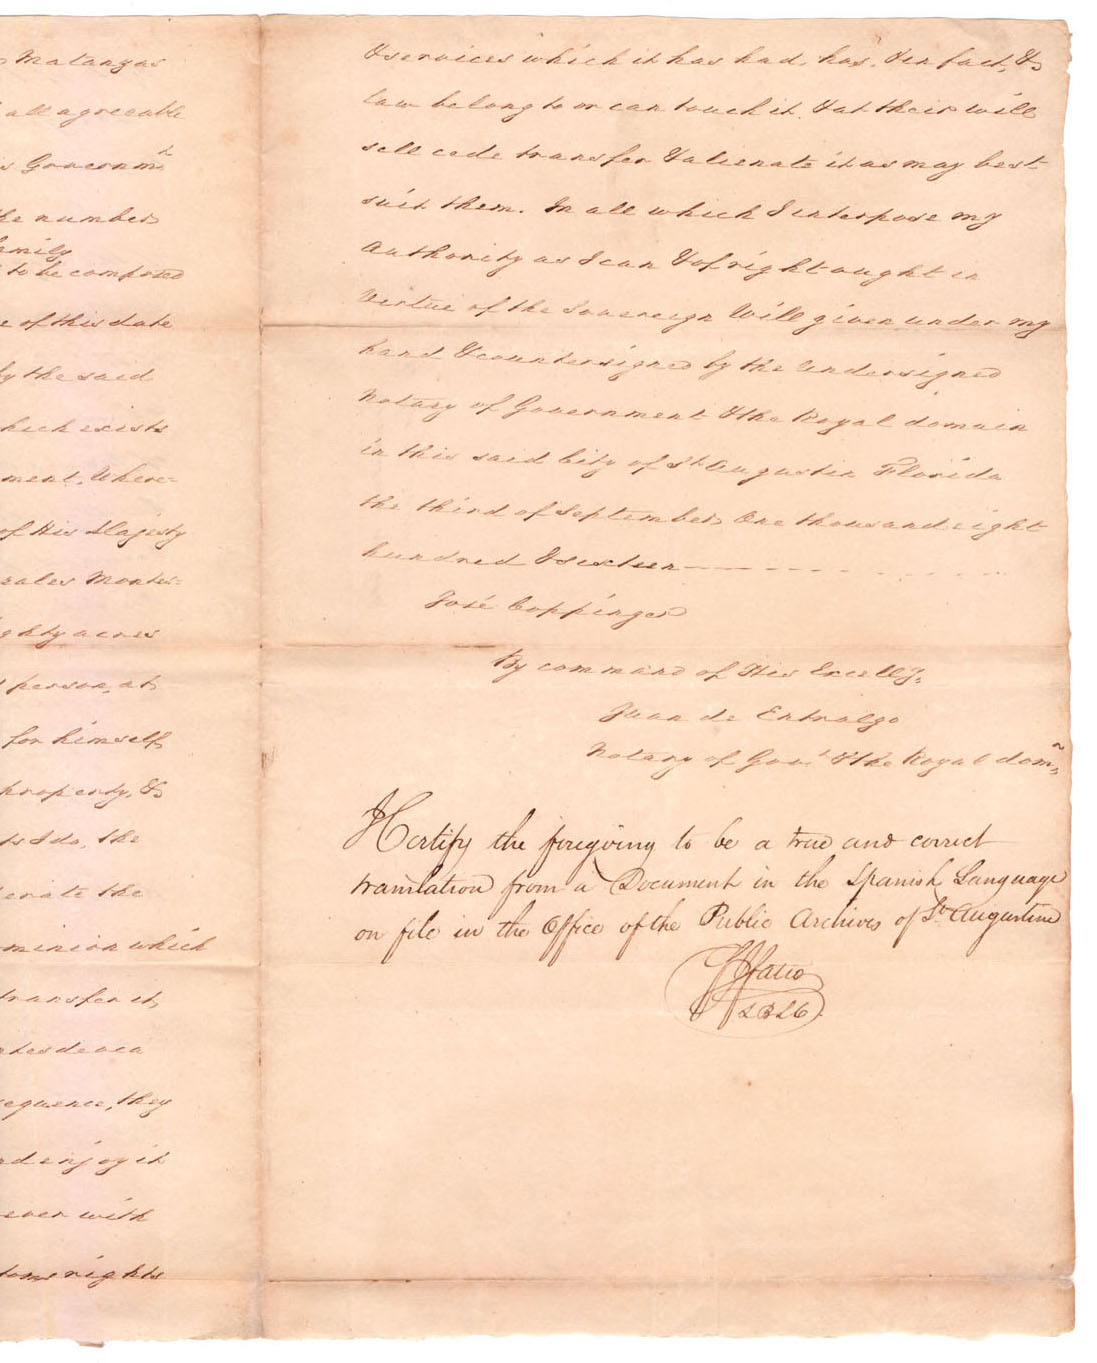 Matanzas
all agreeable
Governmt
the number
family
to be computed
of this date
by the said
which exists
ment. Where=
of His Majesty
rales Montes=
ighty acres
person, at
for himself
property, &
I do, the
erate the
ominion which
transfer it,
sequence, they
enjoy it
ever with
rights
& services which it has had, has, & in fact, &
law belong to or can touch it. & at their will
sell cede transfer & alienate it as may best
suit them. In all which I interpose my
Authority as I can & of right ought in
Virtue of the Sovereign Will given under my
hand & countersigned by the Undersigned
Notary of Government & the Royal domain
in this said City of St Augustin Florida
the third of September One thousand eight
hundred & sixteen
José Coppinger
By command of His Excelly.
Juan de Entralgo
Notary of Govt & the Royal domn
I Certify the foregoing to be a true and correct
translation from a Document in the Spanish Language
on file in the Office of the Public Archives of St Augustine
Fatio